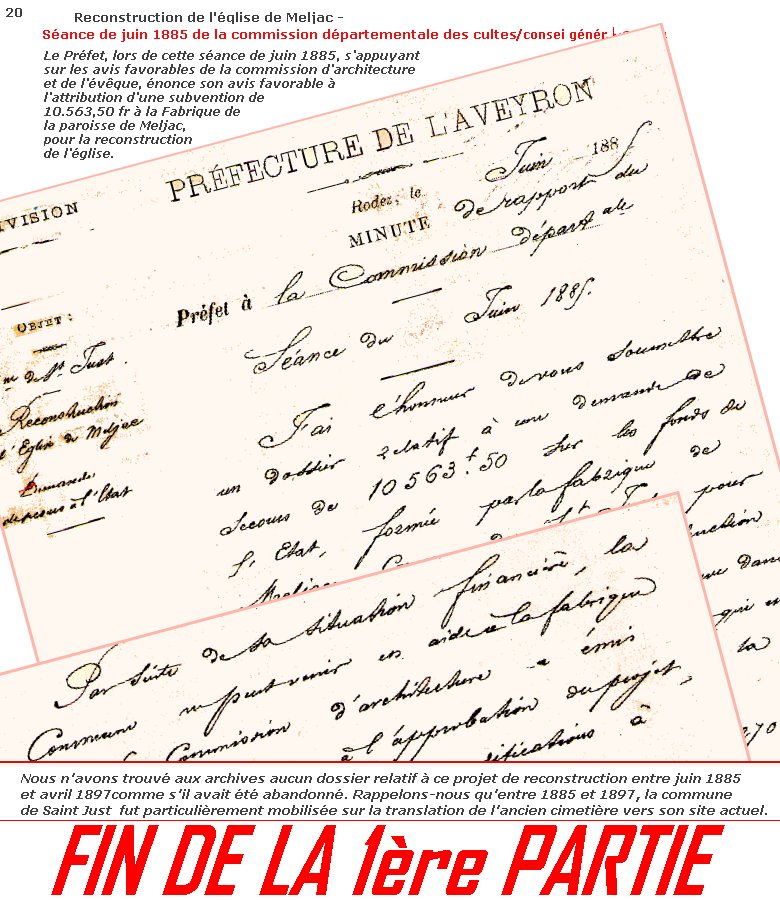 20
Reconstruction de l'église de Meljac -
Séance de juin 1885 de la commission départementale des cultes/consei génér
Le Préfet, lors de cette séance de juin 1885, s'appuyant
sur les avis favorables de la commission d'architecture
et de l'évêque, énonce son avis favorable à
l'attribution d'une subvention de
10.563,50 fr à la Fabrique de
la paroisse de Meljac,
pour la reconstruction
de l'église.
PRÉFECTURE DE L'AVEYRON
IVISION
Rodez, le Juin 1885
MINUTE de rapport du
Préfet à la Commission départale
OBJET:
Séance du Juin 1885.
de St Just.
Reconstruction
l'Eglise de Meljac
Demande
de secours à l'Etat
J'ai l'honneur de vous soumettre
un dossier relatif à une demande de
secours de 10563f.50 sur les fonds de
l'Etat, formée par la fabrique de
Meljac pour
uction
dans
qui
la
270
Par suite de sa situation financière, la
Commune ne peut venir en aide à la fabrique
Commission d'architecture a émis
à l'approbation du projet,
à
Nous n'avons trouvé aux archives aucun dossier relatif à ce projet de reconstruction entre juin 1885
et avril 1897comme s'il avait été abandonné. Rappelons-nous qu'entre 1885 et 1897, la commune
de Saint Just fut particulièrement mobilisée sur la translation de l'ancien cimetière vers son site actuel.
FIN DE LA 1ère PARTIE